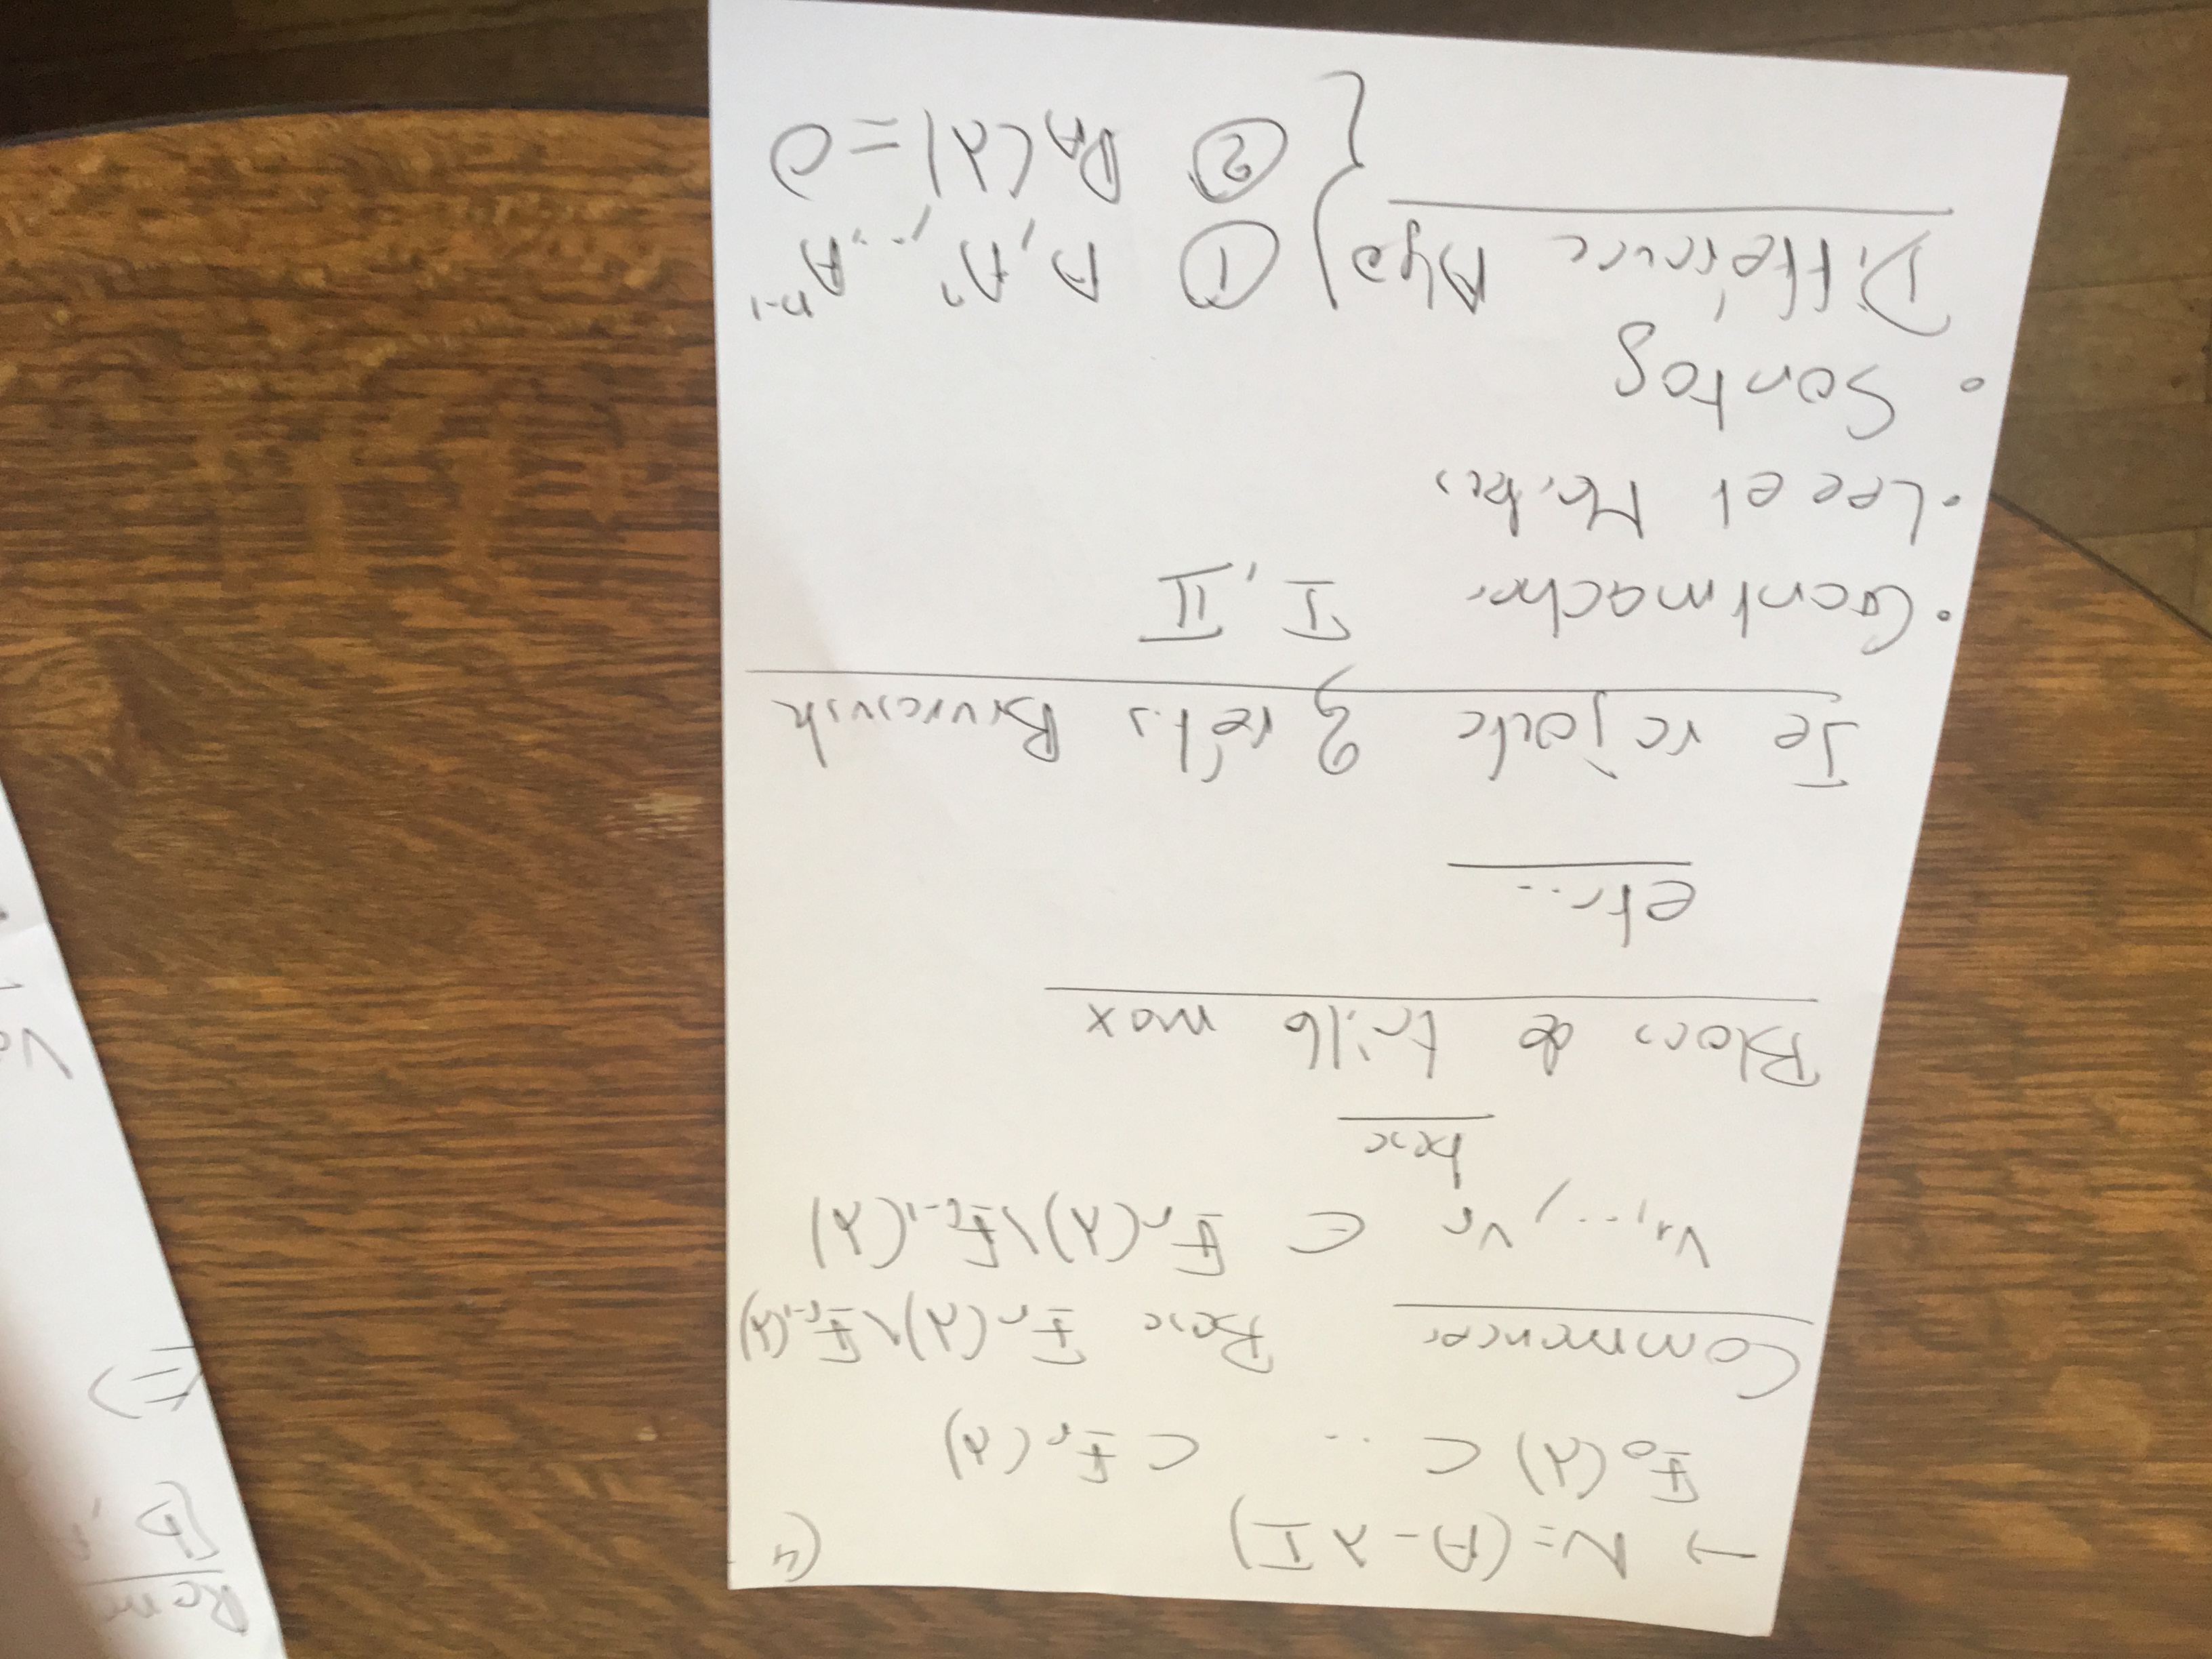 → N=(A-λI) (4
E₀(λ) ⊂ .. ⊂ Eᵣ(λ)
Commencer Base Eᵣ(λ)\Eᵣ₋₁(λ)
v₁,..,vᵣ ∈ Eᵣ(λ)\Eᵣ₋₁(λ)
base
Blocs de taille max
etc..
Je rajoute 2 réf.s
• Gantmacher I, II
• Lee et Markus
• Sontag
Différence Algo } ① A, A², .., Aⁿ⁻¹
{ ② P_A(λ)=0
Rem
(b,
=>